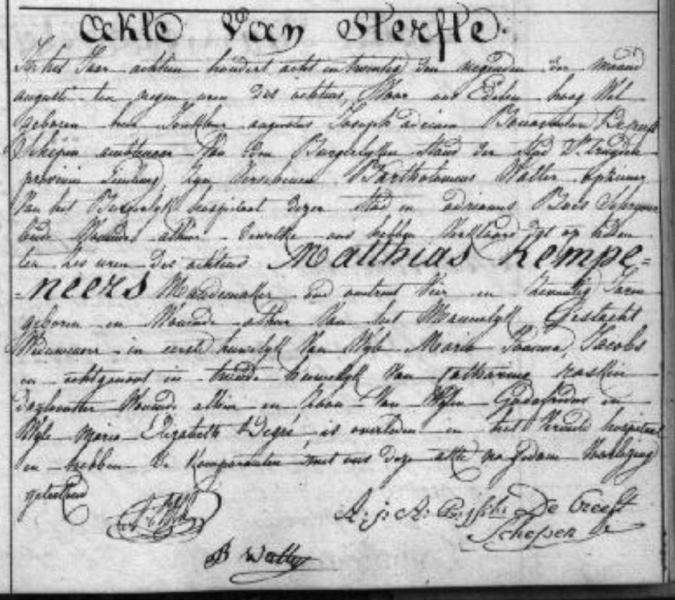 Ackte Van Sterfte.
In het Jaar achtien hondert acht en twentig den negenden der maand
augusti ten negen uren des achtens, Voor ons Edelen hoog Wel
geboren heer Jonkheer augustus Joseph adriaen Bonaventura
Schepen ambtenaer Van den Burgerlyken stand der stad St truyden
provincie Limburg Zyn Verschenen Bartholomeus Walter
Van het Burgerlyk hospitael dezer stad en adrianus Boes
beide Wonende alhier dewelke ons hebben Verklaard dat op heden
ten zes uren des achtens Matthias Kempe=
=neers Mandemaker oud omtrent Vier en Zeventig Jaren
geboren en Wonende alhier Van het Mannelyk Geslacht
Weduwenaer in eerst huwelyk Van Wyle Maria Joanna Jacobs
en echtgenoot in tweede huwelyk Van Catharina
Wonende alhier en Zoon Van Wylen Godefridus en
Wyle Maria Elizabeth Degré, is overleden in het hospitael
en hebben de Komparanten met ons deze akte na gedane Voorlezing
geteekend
A. J. A. De Creeft
Schepen
B Walter